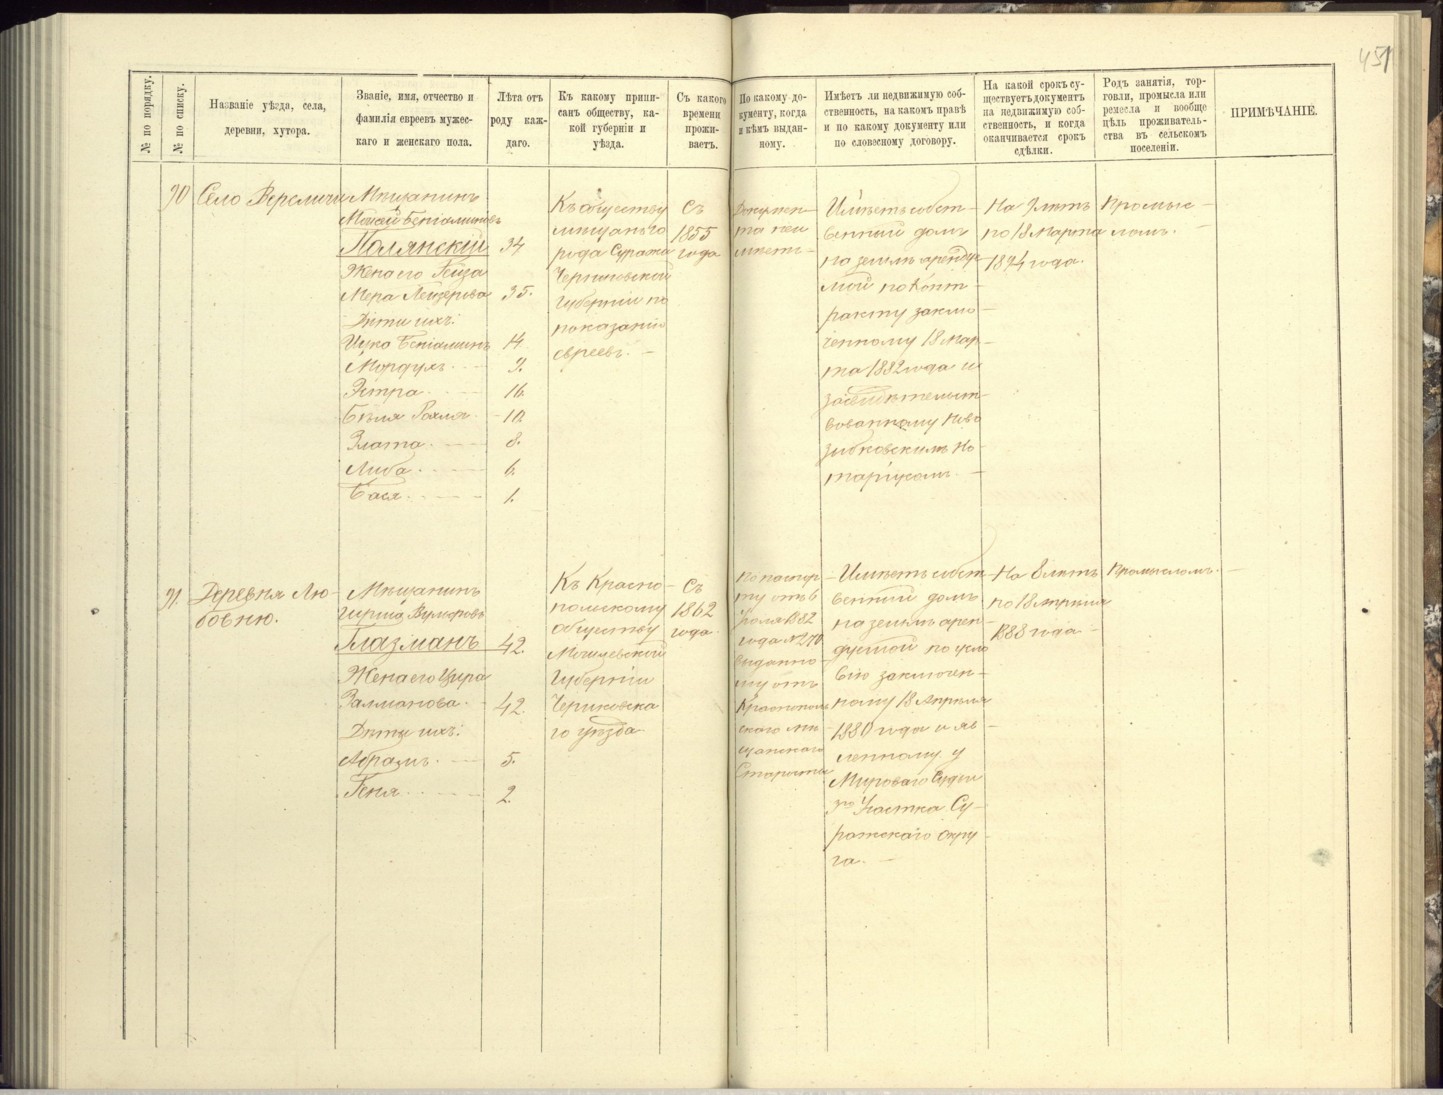 451
№ по порядку.
№ по списку.
Названіе уѣзда, села,
деревни, хутора.
Званіе, имя, отчество и
фамилія евреевъ мужес-
каго и женскаго пола.
Лѣта отъ
роду каж-
даго.
Къ какому припи-
санъ обществу, ка-
кой губерніи и
уѣзда.
Съ какого
времени
прожи-
ваетъ.
По какому до-
кументу, когда
и кѣмъ выдан-
ному.
Имѣетъ ли недвижимую соб-
ственность, на какомъ правѣ
и по какому документу или
по словесному договору.
На какой срокъ су-
ществуетъ документъ
на недвижимую соб-
ственность, и когда
оканчивается срокъ
сдѣлки.
Родъ занятія, тор-
говли, промысла или
ремесла и вообще
цѣль проживатель-
ства въ сельскомъ
поселеніи.
ПРИМѢЧАНІЕ.
90
Село
Мѣщанинъ
Беніаминовъ
Полянскій 34
Жена его
35.
Дѣти ихъ:
Беніаминъ 14
9.
Эстра 16.
Бѣля Рохля 10.
Злата 8.
Либа 6.
Бася 1.
Къ обществу
мѣщань го
рода Суража
Черниговской
Губерніи по
показанію
евреевъ.
Съ
1855
года
Докумен-
та не и
мѣетъ
Имѣетъ собст-
венный домъ
на землѣ аренду
мой по конт-
ракту заклю-
ченному 18 Мар-
та 1882 года и
засвидѣтельст-
вованному Ново
зыбковскимъ Но-
таріусомъ.
На
лѣтъ
по 18 Марта
1894 года.
Промыс-
ломъ.
91.
Деревня Лю-
бовню.
Мѣщанинъ
Глазманъ 42.
Жена его Цира
Залманова. 42.
Дѣти ихъ:
Абрамъ. 5.
Геня 2.
Къ Красно-
польскому
обществу
Могилевской
Губерніи
Чериковска
го уѣзда
Съ
1862
года
По паспор-
ту отъ 6
Іюля 1882
года № 270
выданно-
му отъ
Краснополь
скаго мѣ-
щанскаго
Старосты
Имѣетъ собст-
венный домъ
на землѣ арен-
дуемой по усло
вію заключен-
ному 18 Апрѣля
1880 года и яв-
ленному у
Мироваго Судьи
Участка Су-
ражскаго окру-
га.
На 8 лѣтъ
по 18 Апрѣля
1888 года
Промысломъ.